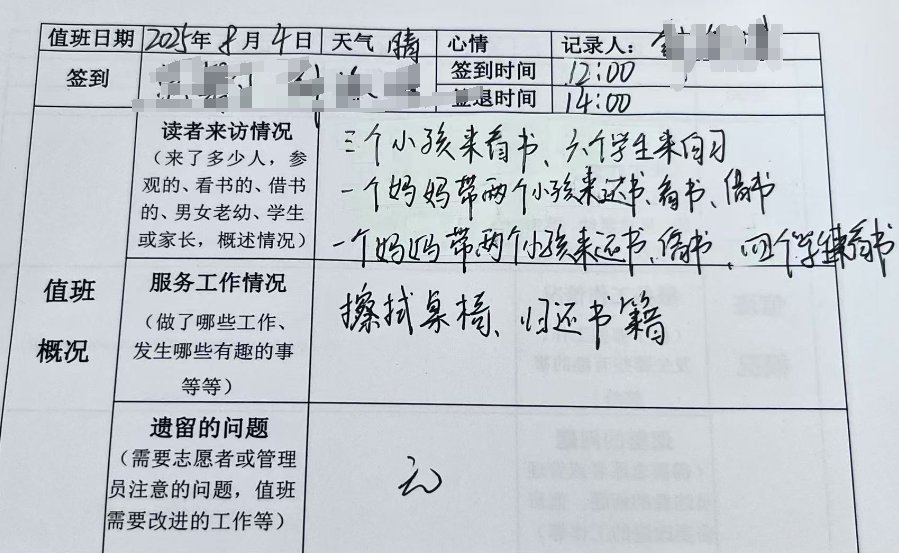 值班日期 2025年8月4日 天气 晴 心情 记录人：
签到 签到时间 12:00
签退时间 14:00
值班概况
读者来访情况
（来了多少人，参
观的、看书的、借书
的、男女老幼、学生
或家长，概述情况）
三个小孩来看书、六个学生来自习
一个妈妈带两个小孩来还书、看书、借书
一个妈妈带两个小孩来还书、借书、四个学生来看书
服务工作情况
（做了哪些工作、
发生哪些有趣的事
等等）
擦拭桌椅、归还书籍
遗留的问题
（需要志愿者或管理
员注意的问题，值班
需要改进的工作等）
无